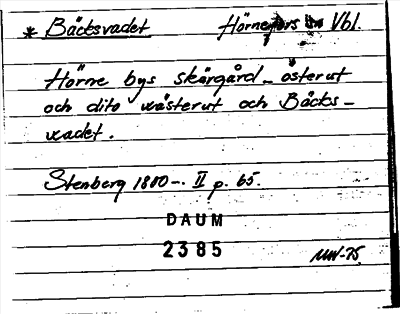 * Bäcksvadet Hörnefors sn Vbl.
Hörne bys skärgård – österut
och dito västerut och Bäcks-
vadet.
Stenberg 1800-. II p. 65.
DAUM
2385 MW-75